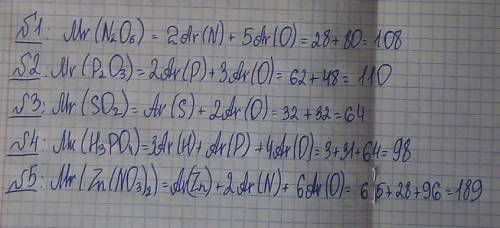 №1: Mr(N₂O₅) = 2Ar(N) + 5Ar(O) = 28+80=108
№2: Mr(P₂O₃)=2Ar(P)+3Ar(O)= 62+48=110
№3: Mr(SO₂)=Ar(S)+2Ar(O)=32+32=64
№4: Mr(H₃PO₄)=3Ar(H)+Ar(P)+4Ar(O)=3+31+64=98
№5: Mr(Zn(NO₃)₂)=Ar(Zn)+2Ar(N)+6Ar(O)= 65+28+96=189